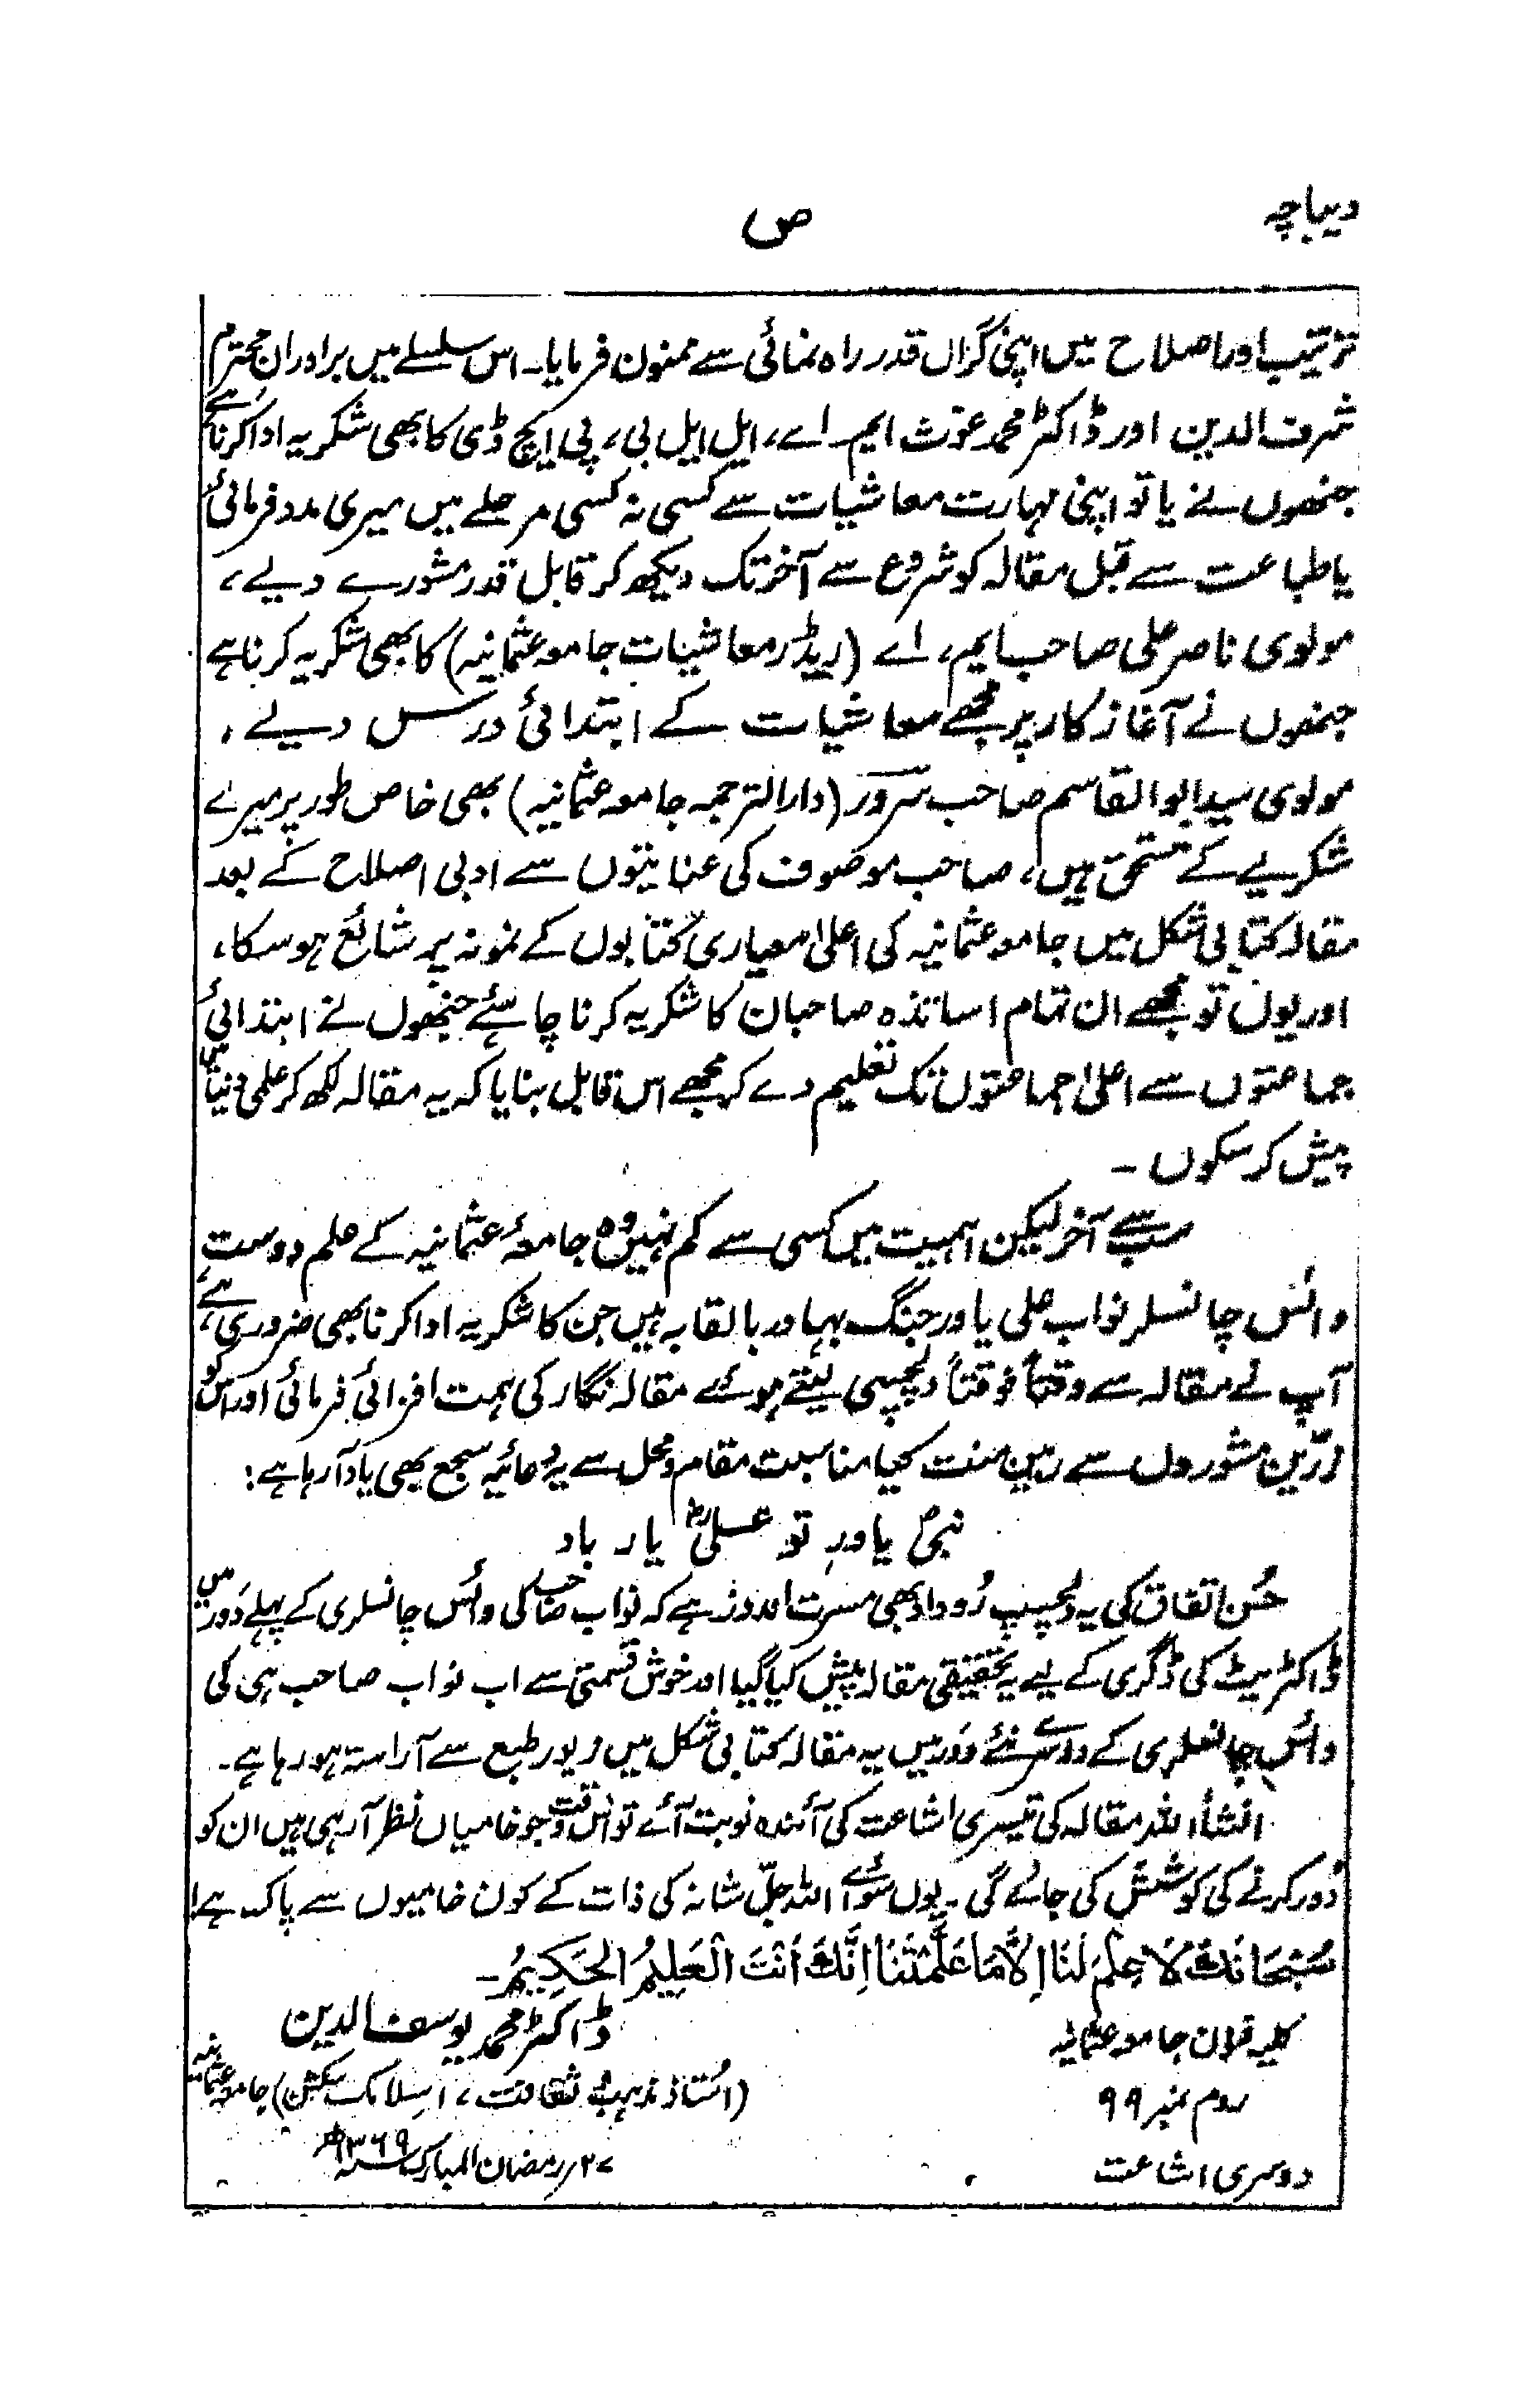 دیباچہ
ص
ترتیب اور اصلاح میں اپنی گراں قدر راہ نمائی سے ممنون فرمایا۔ اس سلسلے میں برادران محترم
شرف الدین اور ڈاکٹر محمد غوث ایم۔ اے، ایل ایل بی، پی ایچ ڈی کا بھی شکریہ ادا کرنا ہے
جنھوں نے یا تو اپنی مہارت معاشیات سے کسی نہ کسی مرحلے میں میری مدد فرمائی
یا طباعت سے قبل مقالہ کو شروع سے آخر تک دیکھ کر قابل قدر مشورے دیے،
مولوی ناصر علی صاحب ایم، اے (ریڈر معاشیات جامعہ عثمانیہ) کا بھی شکریہ کرنا ہے
جنھوں نے آغاز کار پر مجھے معاشیات کے ابتدائی درس دیے،
مولوی سید ابوالقاسم صاحب سرور (دارالترجمہ جامعہ عثمانیہ) بھی خاص طور پر میرے
شکریے کے مستحق ہیں، صاحب موصوف کی عنایتوں سے ادبی اصلاح کے بعد
مقالہ کتابی شکل میں جامعہ عثمانیہ کی اعلیٰ معیاری کتابوں کے نمونہ پر شائع ہوسکا،
اور یوں تو مجھے ان تمام اساتذہ صاحبان کا شکریہ کرنا چاہئے جنھوں نے ابتدائی
جماعتوں سے اعلیٰ جماعتوں تک تعلیم دے کر مجھے اس قابل بنایا کہ یہ مقالہ لکھ کر علمی دنیا میں
پیش کر سکوں ۔
سب سے آخر لیکن اہمیت میں کسی سے کم نہیں وہ جامعۂ عثمانیہ کے علم دوست
وائس چانسلر نواب علی یاور جنگ بہادر بالقابہ ہیں جن کا شکریہ ادا کرنا بھی ضروری ہے،
آپ نے مقالہ سے وقتاً فوقتاً دلچسپی لیتے ہوئے مقالہ نگار کی ہمت افزائی فرمائی اور اس کو
زرّین مشوروں سے رہین منت کیا مناسبت مقام و محل سے یہ دعائیہ سجع بھی یاد آرہا ہے:
نبیؐ یاورِ تو علیؓ یار باد
حُسن اتفاق کی یہ دلچسپ رُوداد بھی مسرت اندوز ہے کہ نواب صاحب کی وائس چانسلری کے پہلے دَور میں
ڈاکٹریٹ کی ڈگری کے لیے یہ تحقیقی مقالہ پیش کیا گیا اور خوش قسمتی سے اب نواب صاحب ہی کی
وائس چانسلری کے دوسرے نئے دَور میں یہ مقالہ کتابی شکل میں زیور طبع سے آراستہ ہو رہا ہے۔
انشأاللہ مقالہ کی تیسری اشاعت کی آئندہ نوبت آئے تو اس وقت جو خامیاں نظر آرہی ہیں ان کو
دُور کرنے کی کوشش کی جائے گی ۔ یوں سوائے اللہ جلّ شانہ کی ذات کے کون خامیوں سے پاک ہے!
سُبْحَانَكَ لَا عِلْمَ لَنَا اِلَّا مَا عَلَّمْتَنَا اِنَّكَ اَنْتَ الْعَلِيْمُ الْحَكِيْمُ۔
ڈاکٹر محمد یوسف الدین
کلیہ فنون جامعہ عثمانیہ
(اُستاذ مذہب و ثقافت، اسلامک سکشن) جامعہ عثمانیہ
روم نمبر ۹۹
۲۷ رمضان المبارک سنہ ۱۳۶۹ھ
دوسری اشاعت